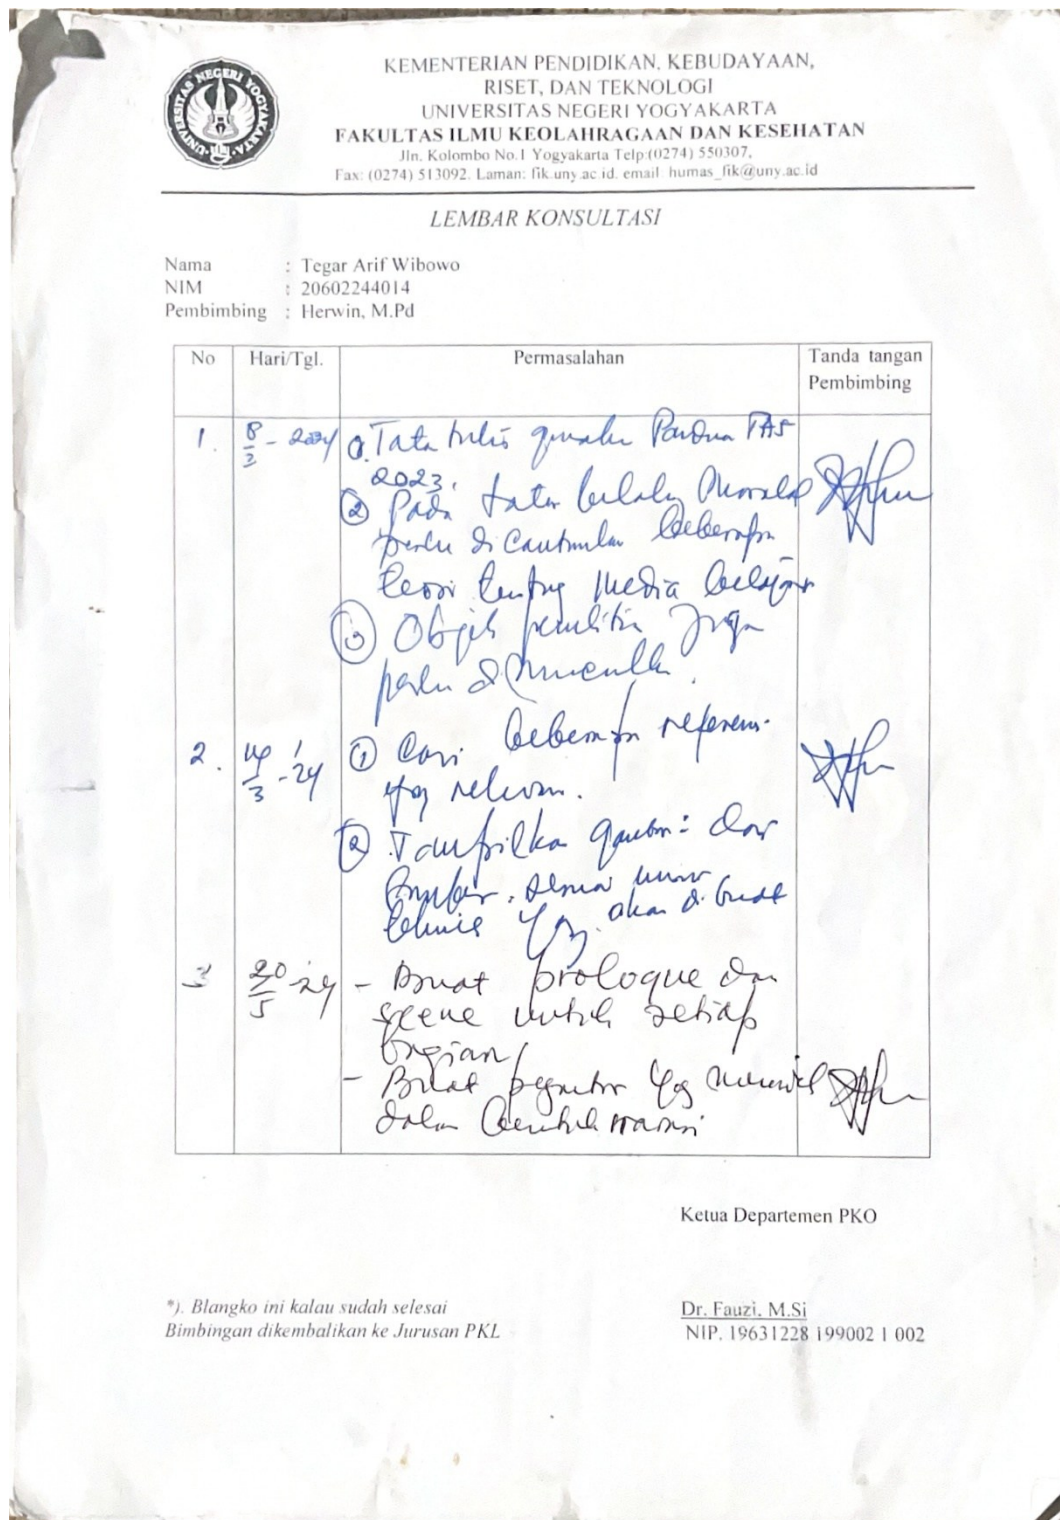 UNIVERSITAS NEGERI YOGYAKARTA
KEMENTERIAN PENDIDIKAN, KEBUDAYAAN,
RISET, DAN TEKNOLOGI
UNIVERSITAS NEGERI YOGYAKARTA
FAKULTAS ILMU KEOLAHRAGAAN DAN KESEHATAN
Jln. Kolombo No.1 Yogyakarta Telp:(0274) 550307,
Fax: (0274) 513092. Laman: fik.uny.ac.id. email: humas_fik@uny.ac.id
LEMBAR KONSULTASI
Nama : Tegar Arif Wibowo
NIM : 20602244014
Pembimbing : Herwin, M.Pd
No Hari/Tgl. Permasalahan Tanda tangan
Pembimbing
1. 2024 Tata tulis TAS
2023.
② Pada latar belakang
perlu di cantumkan beberapa
teori tentang media belajar
③ Objek penelitian juga
perlu di munculkan.
2. 3 -24 ① Cari beberapa referensi
yg relevan.
② Tampilkan dari
akan di buat
teknis yg
3 20/5 -24 - Buat prologue dan
scene untuk setiap
bagian
- Buat yg
dalam bentuk narasi
Ketua Departemen PKO
*). Blangko ini kalau sudah selesai
Bimbingan dikembalikan ke Jurusan PKL
Dr. Fauzi, M.Si
NIP. 19631228 199002 1 002